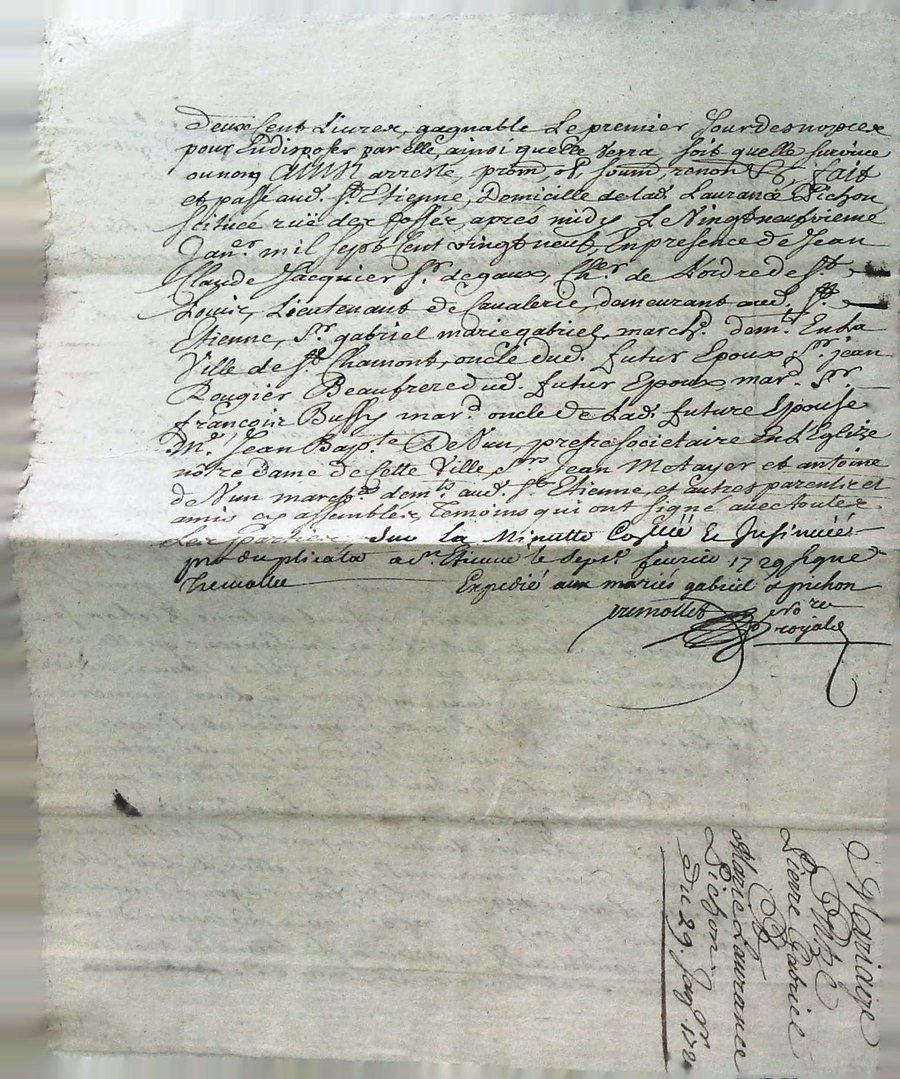 deux Cent Livres, gagnable Le premier Jour des nopces
pour En disposer par elle, ainsi quelle verra soit quelle survive
ou non Ainsi arresté, prom. ob. soum. renon &c. fait
et passé aud. St. Etienne, Domicille de lad. Laurance Pichon
scituée ruë des fosses, apres midy, Le Vingtneufvieme
Janr. mil sept Cent vingt neuf, En presence de Jean
Claude Jacquier Sr. de gaux, Cher. de Lordre de St.
Louis, Lieutenant de Cavalerie, demeurant aud. St.
Etienne, Sr. gabriel marie gabriel, march. demt. En La
Ville de St. Chamont, oncle dud. futur Epoux Sr. jean
Rougier Beaufrere dud. futur Epoux mard. Sr.
françois Bussy mard. oncle de Lad. future Epouse
Mre. Jean Bapte. DeVun, prestre societaire En L'Eglize
notre Dame de Cette Ville, Srs. Jean Metayer et antoine
de Vun marchds. demts. aud. St. Etienne, et autres parents et
amis cy assemblés, temoins qui ont signé avec toutes
Les parties. Sur La Minutte Collée & Insinuée
pro duplicata a St. Etienne le sept. fevrier 1729 signé
tremollet Expedié aux mariés gabriel & pichon
tremollet nore.
royale
Mariage
D'Entre
Pierre Gabriel
Et
Marie Laurance
Pichon
Du 29. Janr. 172